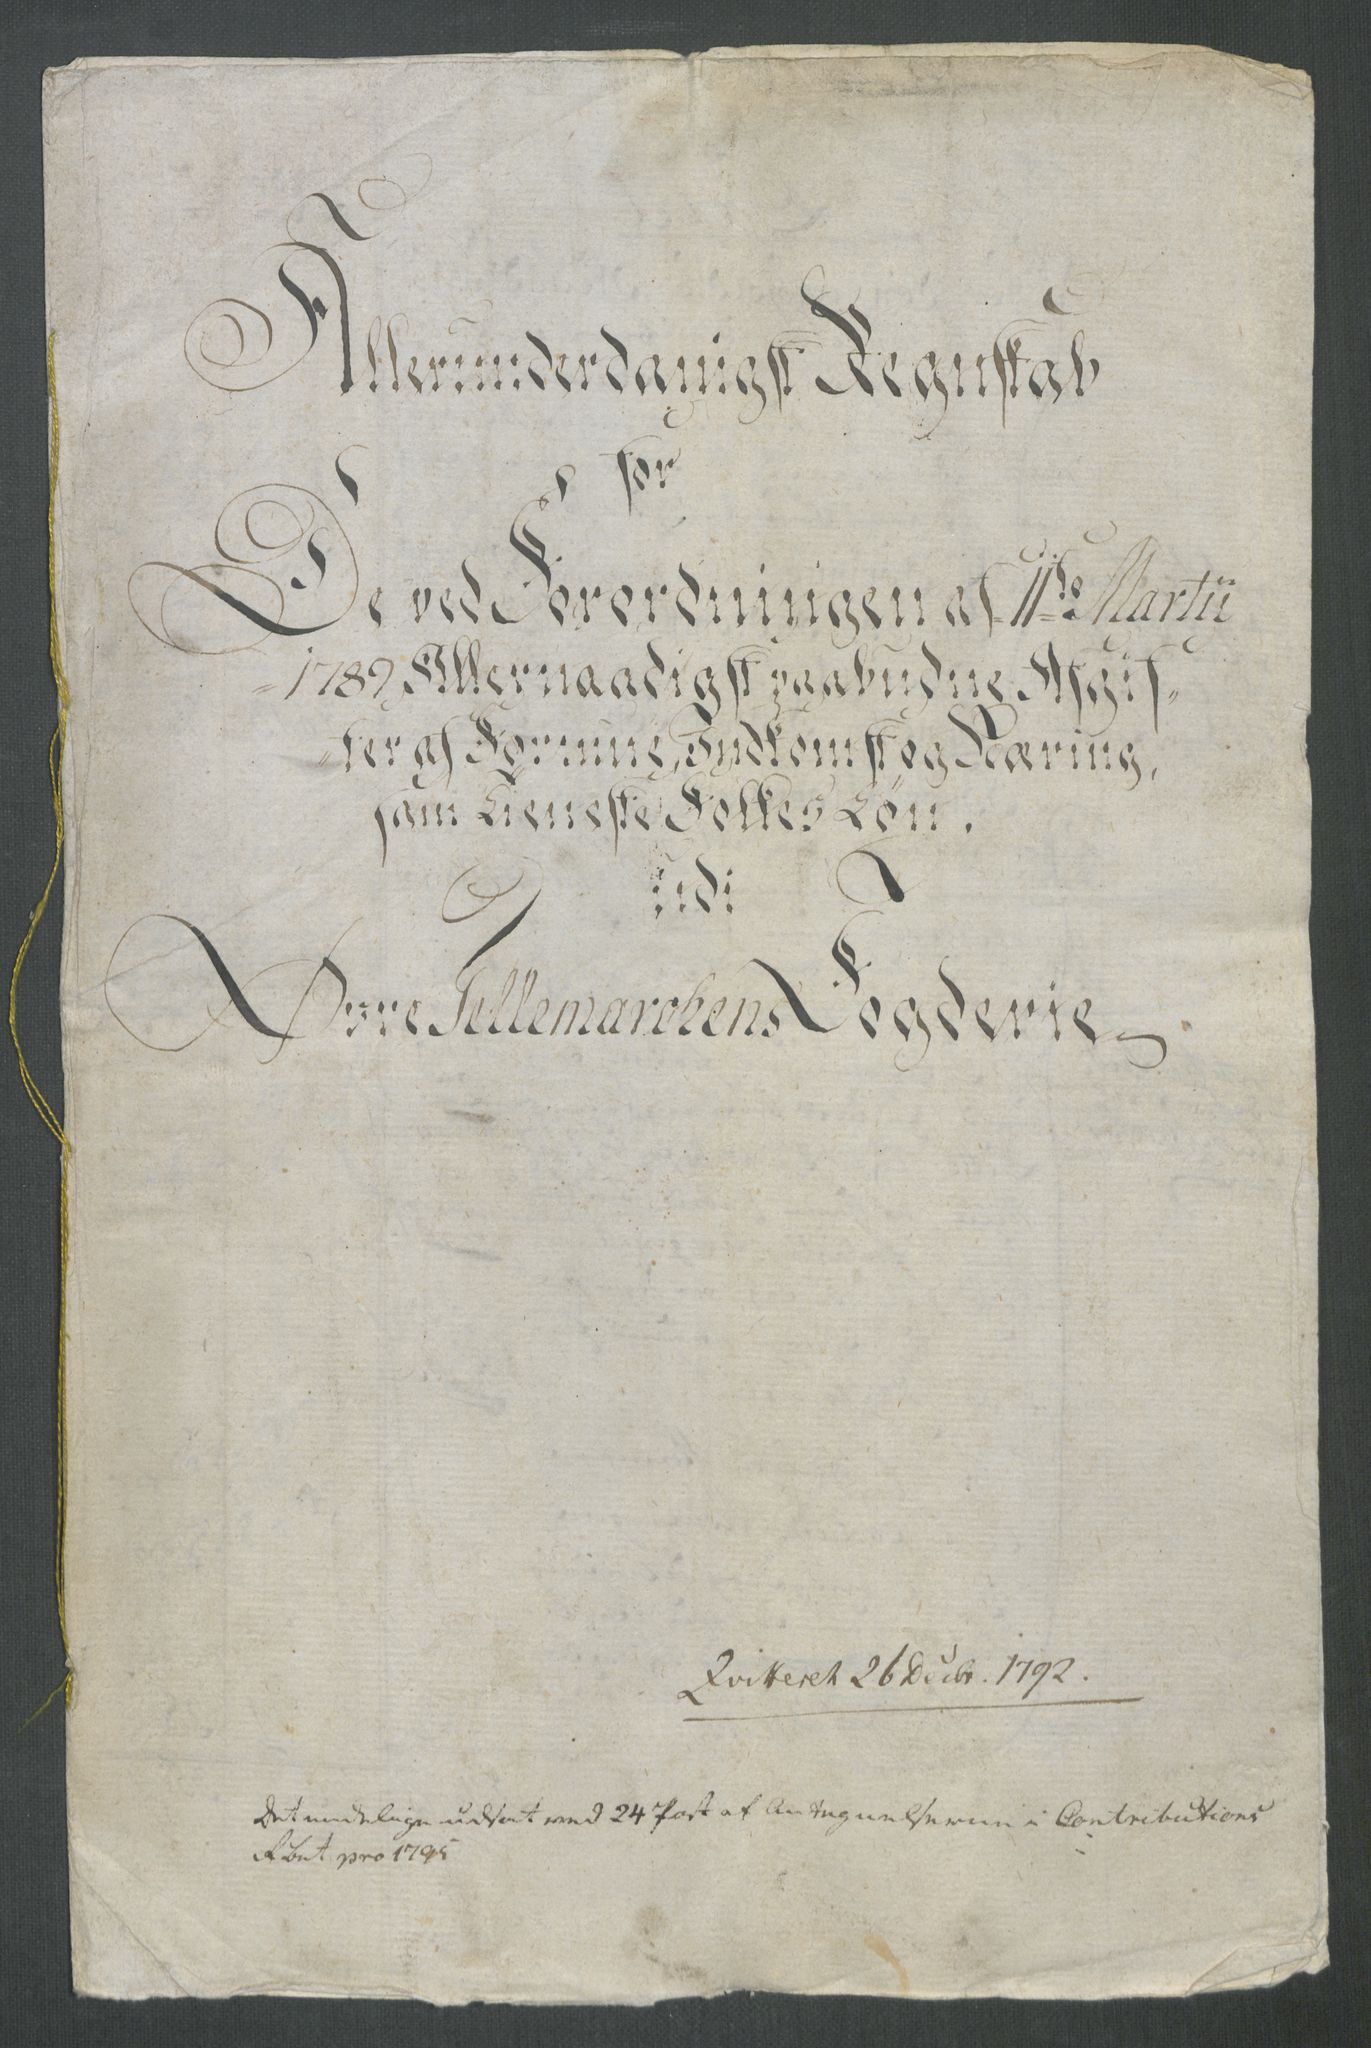 Allerunderdanigst Regnskab
for
De ved Forordningen af 11te Martii
1789 Allernaadigst paabudne Afgif-
ter af Formue, Indkomst og Næring,
sam Tieneste Folkes Løn.
udi
Øvre Tellemarckens Fogderie
Qvitteret 26 Decbr. 1792.
Det endelige udsat med 24 Post af Antegnelserne i Contributions
pro 1795